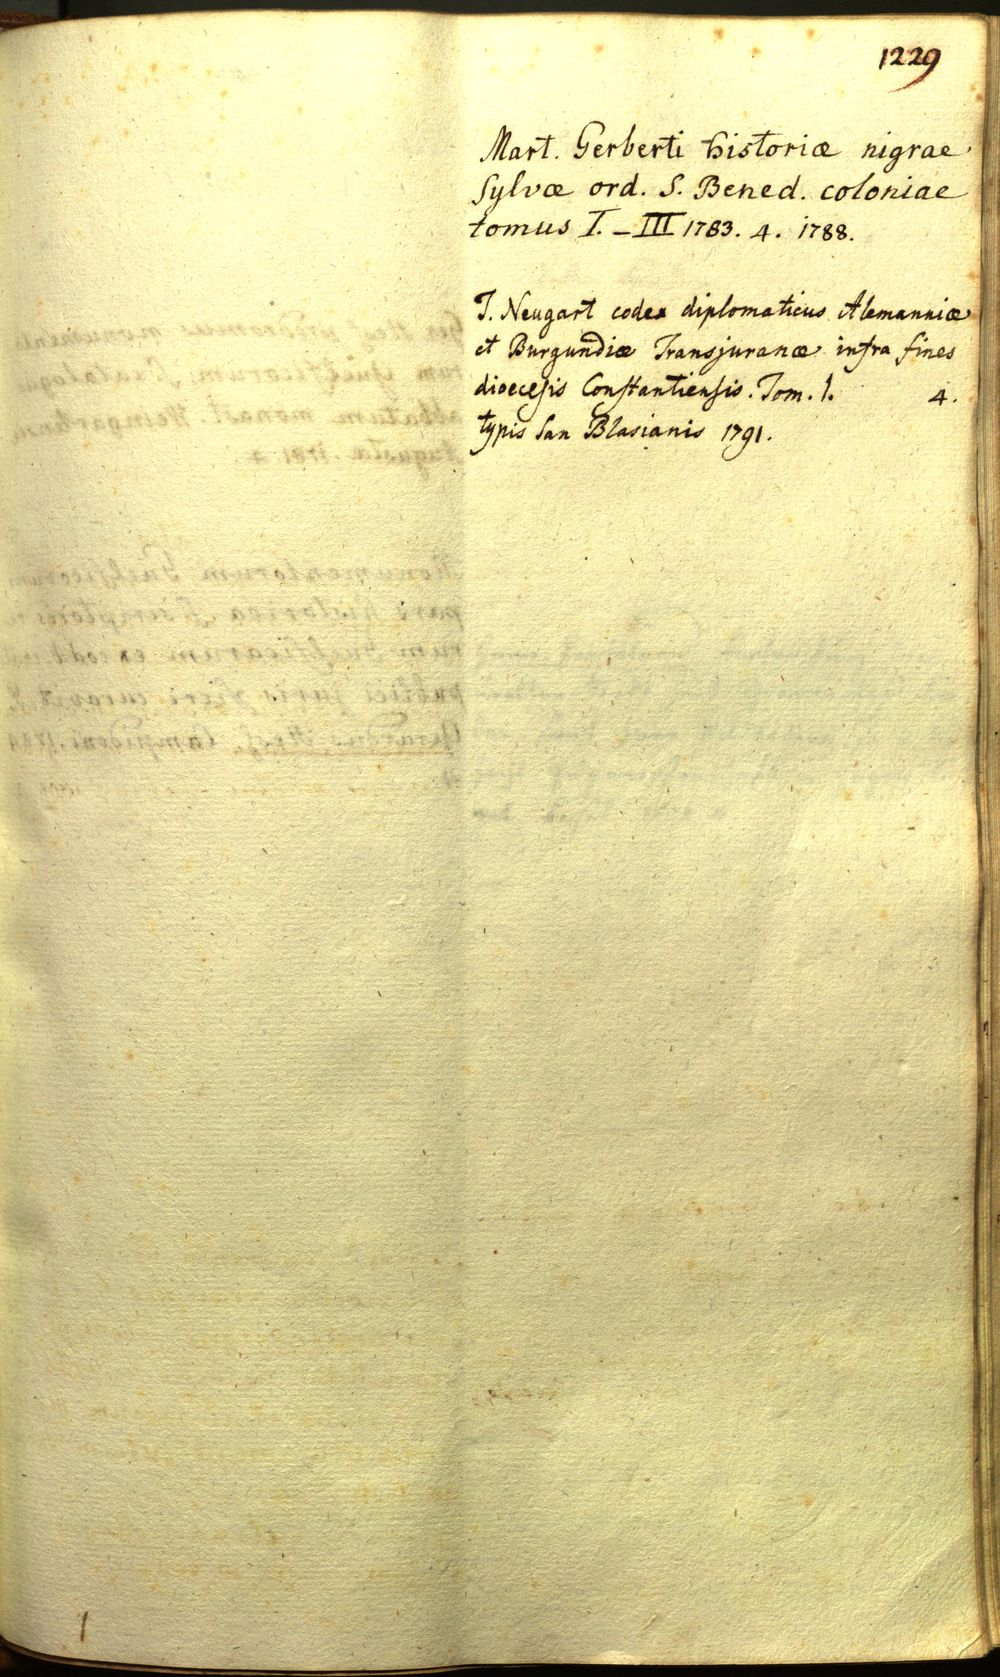 1229
Mart. Gerberti historiæ nigrae
Sylvæ ord. S. Bened. coloniae
tomus I. – III 1783. 4. 1788.
T. Neugart codex diplomaticus Alemanniæ
et Burgundiæ Transjuranæ intra fines
dioecesis Constantiensis. Tom. 1. 4.
typis San Blasianis 1791.